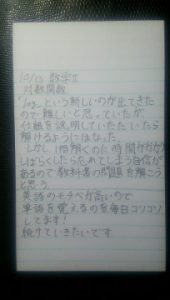 10/13 数学Ⅱ
対数関数
"log"という新しいのが出てきた
ので難しいと思っていたが
仕組を説明していただいたら
解けるようにはなった
しかし1問解くのに時間がかかり
しばらくしたら忘れてしまう自信が
あるので教科書の問題を解こう
と思う
英語のモチベが高いので
単語を覚えるのを毎日コツコツ
してます!
続けていきたいです